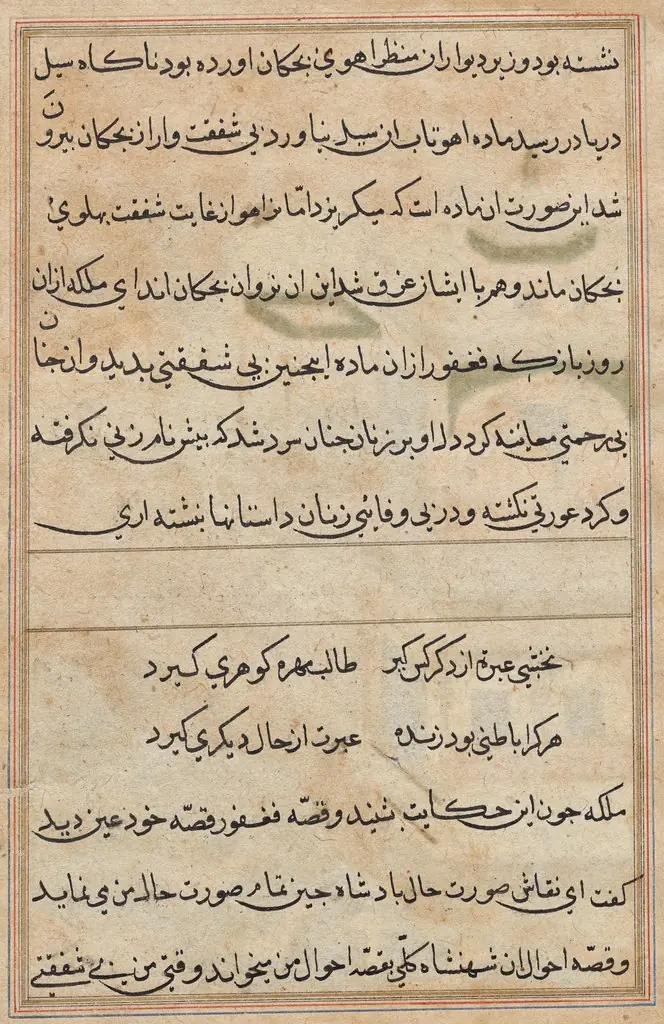 نشسته بود و زیر دیوار ان منظر اهوئ بجکان اورده بود ناکاه سیل
دریا در رسید ماده اهو تاب ان سیل نیاورد بی شفقت وار از بجکان بیرون
شد این صورت ان ماده است که میکریزد امّا نر اهو از غایت شفقت بهلوئ
بجکان ماند و هم با ایشان غرق شد این ان نر وان بجکان اند ای ملکه ازان
روز باز که فغفور ازان ماده اینجنین بی شفقتی بدید وان جنان
بی رحمتی معاینه کرد دل او بر زنان جنان سرد شد که بیش نام زنی نکرفته
و کرد عورتی نکشته و در بی وفائی زنان داستانها بنشته اری
نخشبی عبرة از دکر کس کیر طالب مهره کوهری کیرد
هرکرا باطنی بود زنده عبرت از حال دیکری کیرد
ملکه جون این حکایت بشنید و قصّه فغفور قصّه خود عین دید
کفت ای نقاش صورت حال بادشاه جین تمام صورت حال من می نماید
و قصّه احوال ان شهنشاه کلّی بقصّه احوال من میخواند وقتی من نیز بی شفقتی